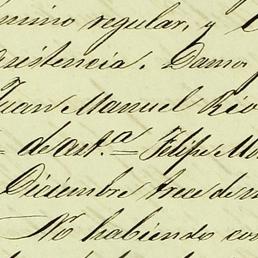 mino regular, y
sistencia. Damo
Juan Manuel Rio
de ast.ª = Felipe Mo
Diciembre trece de m
No habiendo con